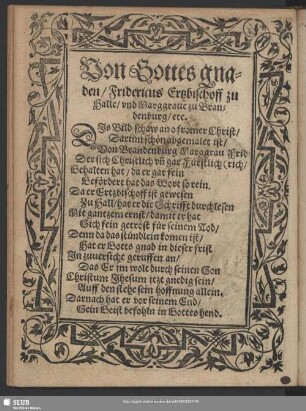 Von Gottes gna-
den/ Fridericus Ertzbischoff zu
Halle/ vnd Marggraue zu Bran-
denburg/ etc.
DIs Bild schaw an o fromer Christ/
Darinn schön abgemalet ist/
Von Brandenburg Marggraff Frid
Der sich Christlich vñ gar Fürstlich (rich/
Gehalten hat/ da er gar fein
Befördert hat das Wort so rein.
Da er Ertzbischoff ist gewesen
Zu Hall/ hat er die Schrifft durchlesen
Mit gantzem ernst/ damit er hat
Sich fein getröst für seinem Tod/
Denn da das stündlein komen ist/
Hat er Gotts gnad in dieser frist
In zuuersicht geruffen an/
Das Er im wolt durch seinen Son
Christum Jhesum itzt gnedig sein/
Auff den stehe sein hoffnung allein.
Darnach hat er vor seinem End/
Sein Geist befohln in Gottes hend.
SLUB